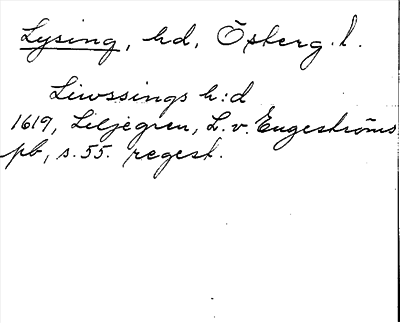 Lysing, hd, Östberg. l.
Liwssings h:d
1619, Liljegren, L. v. Engeströms
pb, s. 55. regest.